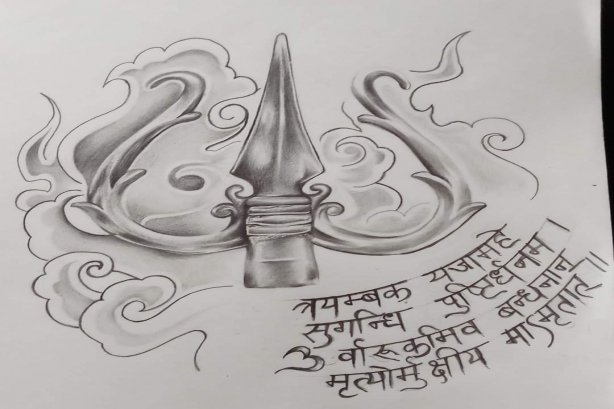 त्रयम्बक यजामहे
सुगन्धि पुष्टिर्धनम ।
उर्वारूकमिव बन्धनान
मृत्योर्मुक्षीय माऽमृतात् ॥